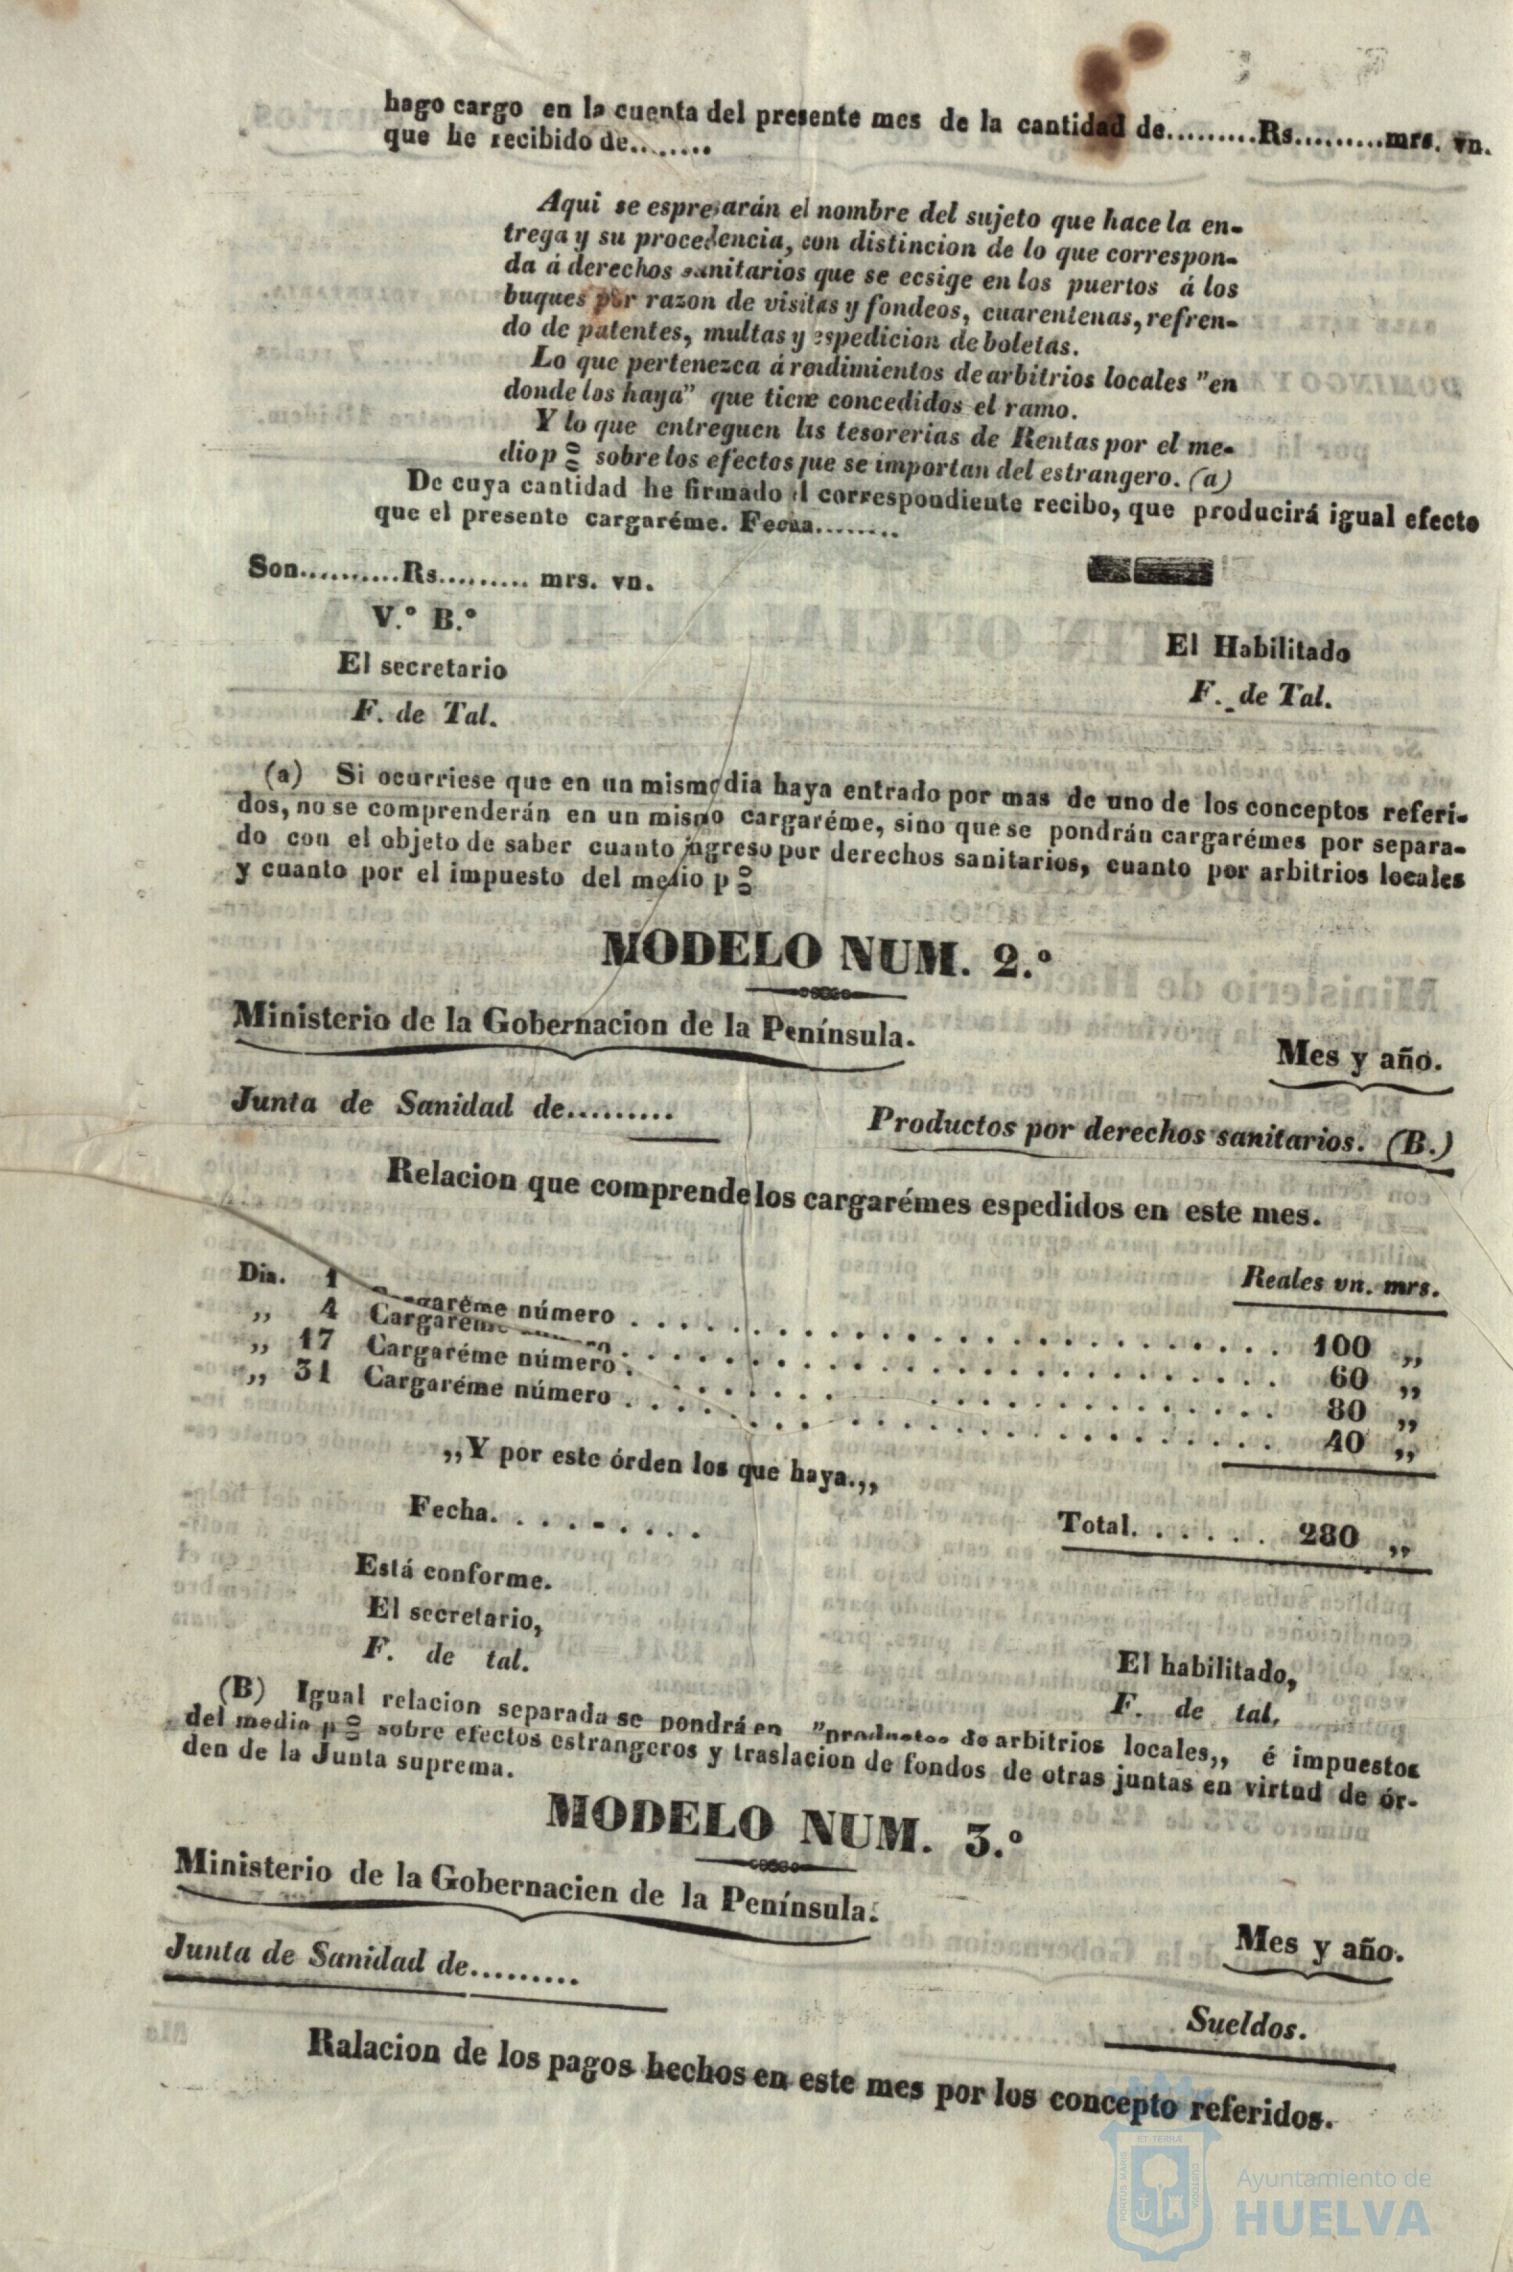 hago cargo en la cuenta del presente mes de la cantidad de.........Rs.........mrs. vn.
que he recibido de........
Aqui se espresarán el nombre del sujeto que hace la en-
trega y su procedencia, con distincion de lo que correspon-
da á derechos sanitarios que se ecsige en los puertos á los
buques por razon de visitas y fondeos, cuarentenas, refren-
do de patentes, multas y espedicion de boletas.
Lo que pertenezca á rendimientos de arbitrios locales "en
donde los haya" que tiene concedidos el ramo.
Y lo que entreguen las tesorerias de Rentas por el me-
dio p 0/0 sobre los efectos que se importan del estrangero. (a)
De cuya cantidad he firmado el correspondiente recibo, que producirá igual efecto
que el presente cargaréme. Fecha........
Son..........Rs......... mrs. vn.
V.º B.º
El secretario
F. de Tal.
El Habilitado
F. de Tal.
(a) Si ocurriese que en un mismo dia haya entrado por mas de uno de los conceptos referi-
dos, no se comprenderán en un mismo cargaréme, sino que se pondrán cargarémes por separa-
do con el objeto de saber cuanto ingreso por derechos sanitarios, cuanto por arbitrios locales
y cuanto por el impuesto del medio p 0/0
MODELO NUM. 2.º
Ministerio de la Gobernacion de la Península.
Mes y año.
Junta de Sanidad de.........
Productos por derechos sanitarios. (B.)
Relacion que comprende los cargarémes espedidos en este mes.
Reales vn. mrs.
Dia. 1 Cargaréme número . . . . . . . . . . . . . . . . . . . . 100 ,,
,, 4 Cargaréme número . . . . . . . . . . . . . . . . . . . . 60 ,,
,, 17 Cargaréme número . . . . . . . . . . . . . . . . . . . . 80 ,,
,, 31 Cargaréme número . . . . . . . . . . . . . . . . . . . . 40 ,,
,,Y por este órden los que haya.,,
Fecha. . . . . . . . .
Total. . . . . . 280 ,,
Está conforme.
El secretario,
F. de tal.
El habilitado,
F. de tal.
(B) Igual relacion separada se pondrá en "productos de arbitrios locales,, é impuestos
del medio p 0/0 sobre efectos estrangeros y traslacion de fondos de otras juntas en virtud de ór-
den de la Junta suprema.
MODELO NUM. 3.º
Ministerio de la Gobernacien de la Península.
Mes y año.
Junta de Sanidad de.........
Sueldos.
Ralacion de los pagos hechos en este mes por los concepto referidos.
PORTUS MARIS ET TERRÆ CUSTODIA
Ayuntamiento de
HUELVA